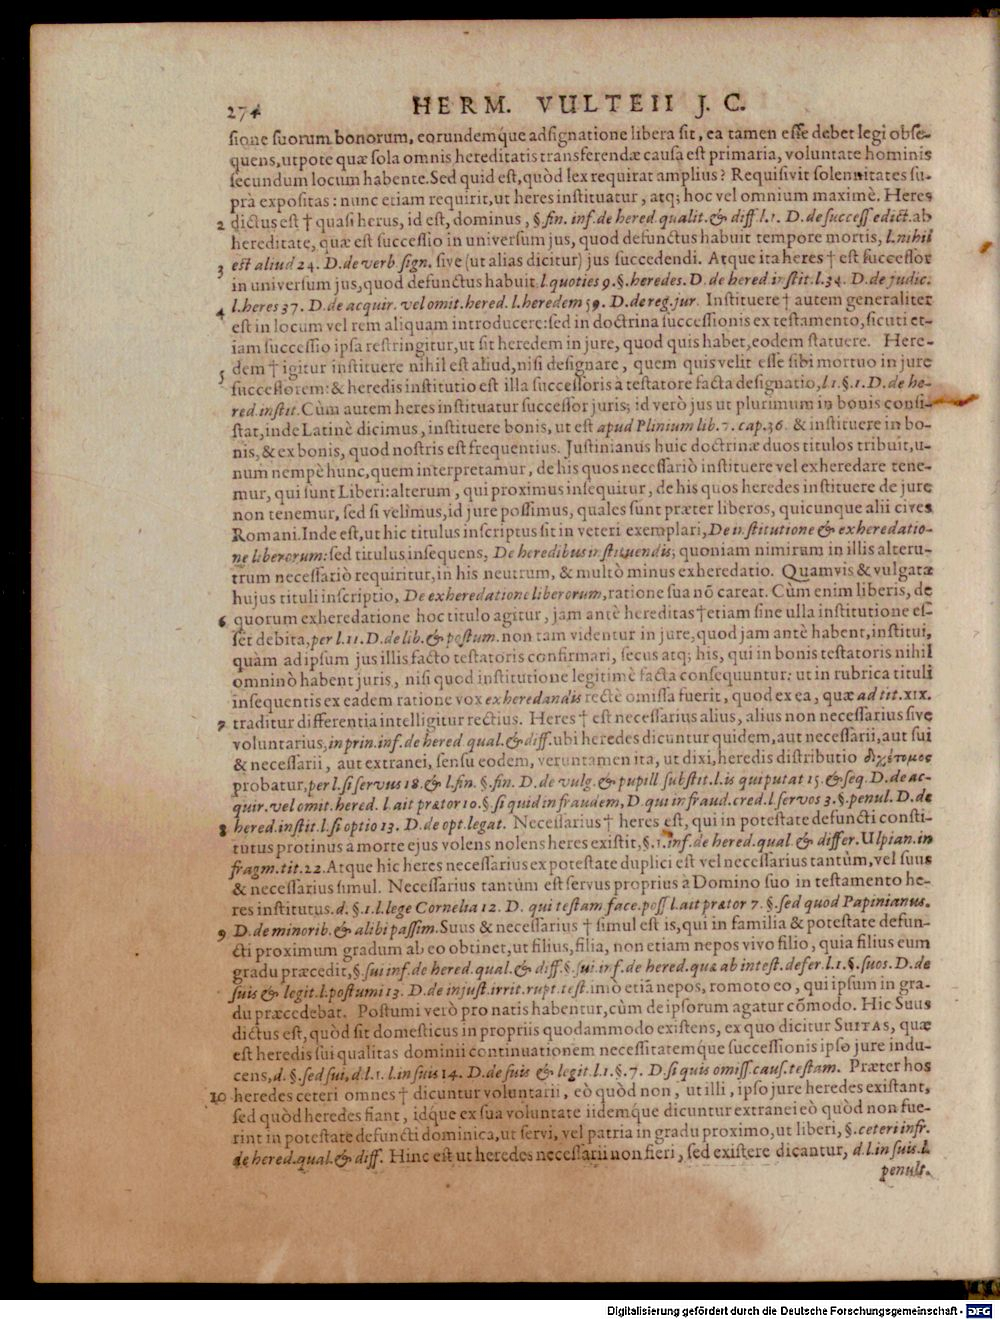 274 HERM. VULTEII J. C.
sione suorum bonorum, eorundemque adsignatione libera sit, ea tamen esse debet legi obse-
quens, utpote quæ sola omnis hereditatis transferendæ causa est primaria, voluntate hominis
secundum locum habente. Sed quid est, quòd lex requirat amplius? Requisivit solennitates su-
prà expositas: nunc etiam requirit, ut heres instituatur, atq; hoc vel omnium maximè. Heres
2 dictus est † quasi herus, id est, dominus, §. fin. inf. de hered. qualit. & diff. l. 1. D. de success. edict. ab
hereditate, quæ est successio in universum jus, quod defunctus habuit tempore mortis, l. nihil
3 est aliud 24. D. de verb. sign. sive (ut alias dicitur) jus succedendi. Atque ita heres † est successor
in universum jus, quod defunctus habuit l. quoties 9. §. heredes. D. de hered. instit. l. 34. D. de judic.
4 l. heres 37. D. de acquir. vel omit. hered. l. heredem 59. D. de reg. jur. Instituere † autem generaliter
est in locum vel rem aliquam introducere: sed in doctrina successionis ex testamento, sicuti et-
iam successio ipsa restringitur, ut sit heredem in jure, quod quis habet, eodem statuere. Here-
5 dem † igitur instituere nihil est aliud, nisi designare, quem quis velit esse sibi mortuo in jure
successorem: & heredis institutio est illa successoris à testatore facta designatio, l. 1. §. 1. D. de he-
red. instit. Cùm autem heres instituatur successor juris; id verò jus ut plurimum in bonis consi-
stat, inde Latinè dicimus, instituere bonis, ut est apud Plinium lib. 7. cap. 36. & instituere in bo-
nis, & ex bonis, quod nostris est frequentius. Justinianus huic doctrinæ duos titulos tribuit, u-
num nempè hunc, quem interpretamur, de his quos necessariò instituere vel exheredare tene-
mur, qui sunt Liberi: alterum, qui proximus insequitur, de his quos heredes instituere de jure
non tenemur, sed si velimus, id jure possimus, quales sunt præter liberos, quicunque alii cives
Romani. Inde est, ut hic titulus inscriptus sit in veteri exemplari, De institutione & exheredatio-
ne liberorum: sed titulus insequens, De heredibus instituendis; quoniam nimirum in illis alteru-
trum necessariò requiritur, in his neutrum, & multò minus exheredatio. Quamvis & vulgata
hujus tituli inscriptio, De exheredatione liberorum, ratione sua nō careat. Cùm enim liberis, de
6 quorum exheredatione hoc titulo agitur, jam antè hereditas † etiam sine ulla institutione es-
set debita, per l. 11. D. de lib. & postum. non tam videntur in jure, quod jam antè habent, institui,
quàm ad ipsum jus illis facto testatoris confirmari, secus atq; his, qui in bonis testatoris nihil
omninò habent juris, nisi quod institutione legitimè facta consequuntur: ut in rubrica tituli
insequentis ex eadem ratione vox exheredandis rectè omissa fuerit, quod ex ea, quæ ad tit. XIX.
7 traditur differentia intelligitur rectius. Heres † est necessarius alius, alius non necessarius sive
voluntarius, in prin. inf. de hered. qual. & diff. ubi heredes dicuntur quidem, aut necessarii, aut sui
& necessarii, aut extranei, sensu eodem, veruntamen ita, ut dixi, heredis distributio διχότομος
probatur, per l. si servus 18. & l. fin. §. fin. D. de vulg. & pupill. substit. l. is qui putat 15. & seq. D. de ac-
quir. vel omit. hered. l. ait prætor 10. §. si quid in fraudem, D. qui in fraud. cred. l. servos 3. §. penul. D. de
8 hered. instit. l. si optio 13. D. de opt. legat. Necessarius † heres est, qui in potestate defuncti consti-
tutus protinus à morte ejus volens nolens heres existit, §. 1. inf. de hered. qual. & differ. Ulpian. in
fragm. tit. 22. Atque hic heres necessarius ex potestate duplici est vel necessarius tantùm, vel suus
& necessarius simul. Necessarius tantùm est servus proprius à Domino suo in testamento he-
res institutus. d. §. 1. l. lege Cornelia 12. D. qui testam. face. poss. l. ait prætor 7. §. sed quod Papinianus.
9 D. de minorib. & alibi passim. Suus & necessarius † simul est is, qui in familia & potestate defun-
cti proximum gradum ab eo obtinet, ut filius, filia, non etiam nepos vivo filio, quia filius eum
gradu præcedit, §. sui inf. de hered. qual. & diff. §. sui. inf. de hered. quæ ab intest. defer. l. 1. §. suos. D. de
suis & legit. l. postumi 13. D. de injust. irrit. rupt. test. imò etiā nepos, romoto eo, qui ipsum in gra-
du præcedebat. Postumi verò pro natis habentur, cùm de ipsorum agatur cōmodo. Hic Suus
dictus est, quòd sit domesticus in propriis quodammodo existens, ex quo dicitur SUITAS, quæ
est heredis sui qualitas dominii continuationem necessitatemque successionis ipso jure indu-
cens, d. §. sed sui, d. l. 1. l. in suis 14. D. de suis & legit. l. 1. §. 7. D. si quis omiss. caus. testam. Præter hos
10 heredes ceteri omnes † dicuntur voluntarii, eò quòd non, ut illi, ipso jure heredes existant,
sed quòd heredes fiant, idque ex sua voluntate iidemque dicuntur extranei eò quòd non fue-
rint in potestate defuncti dominica, ut servi, vel patria in gradu proximo, ut liberi, §. ceteri infr.
de hered. qual. & diff. Hinc est ut heredes necessarii non fieri, sed existere dicantur, d. l. in suis. l.
penult.
Digitalisierung gefördert durch die Deutsche Forschungsgemeinschaft - DFG